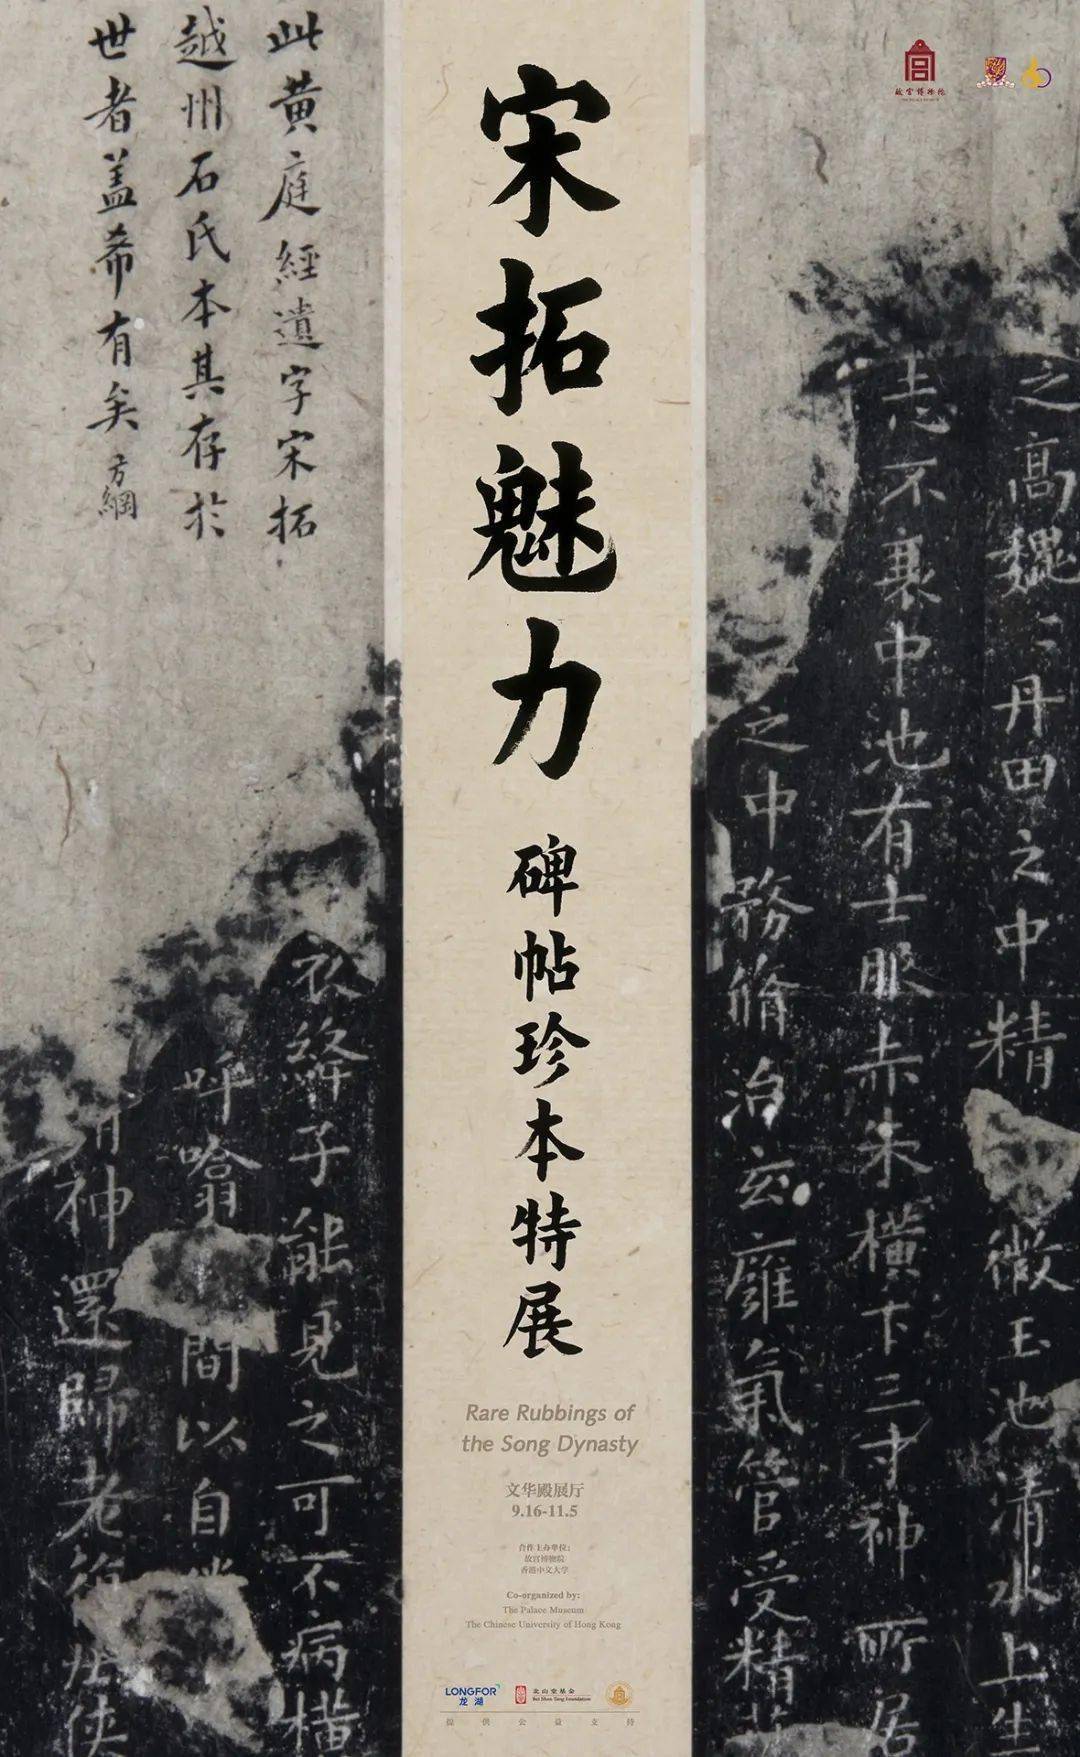 此黄庭經遺字宋拓
越州石氏本其存於
世者盖希有矣 方綱
故宫博物院
THE PALACE MUSEUM
宋拓魅力
碑帖珍本特展
Rare Rubbings of
the Song Dynasty
文华殿展厅
9.16-11.5
合作主办单位：
故宫博物院
香港中文大学
Co-organized by:
The Palace Museum
The Chinese University of Hong Kong
LONGFOR
龙湖
北山堂基金
Bei Shan Tang Foundation
提供公益支持
之高魏〻丹田之中精
微玉池清水上生
志不衰中池有士服赤朱横下三寸神所居
之中務脩治玄廱氣管受精
衣絳子能見之可不病横
呼噏 間以自
神還歸老 俠